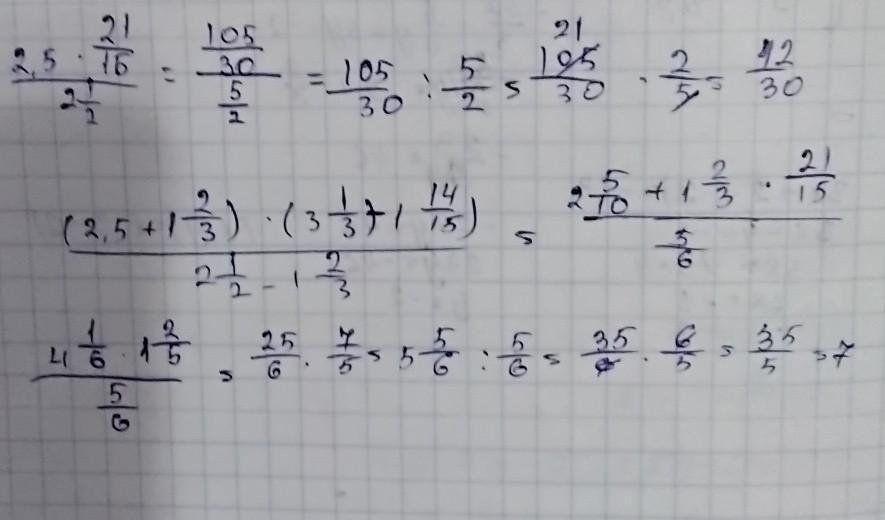 (2,5 · 21/15) / (2 1/2) = (105/30) / (5/2) = 105/30 : 5/2 = 21 105/30 · 2/5 = 42/30
((2,5 + 1 2/3) · (3 1/3 - 1 14/15)) / (2 1/2 - 1 2/3) = (2 5/10 + 1 2/3 · 21/15) / (5/6)
(4 1/6 · 1 2/5) / (5/6) = 25/6 · 7/5 = 5 5/6 : 5/6 = 35/6 · 6/5 = 35/5 = 7